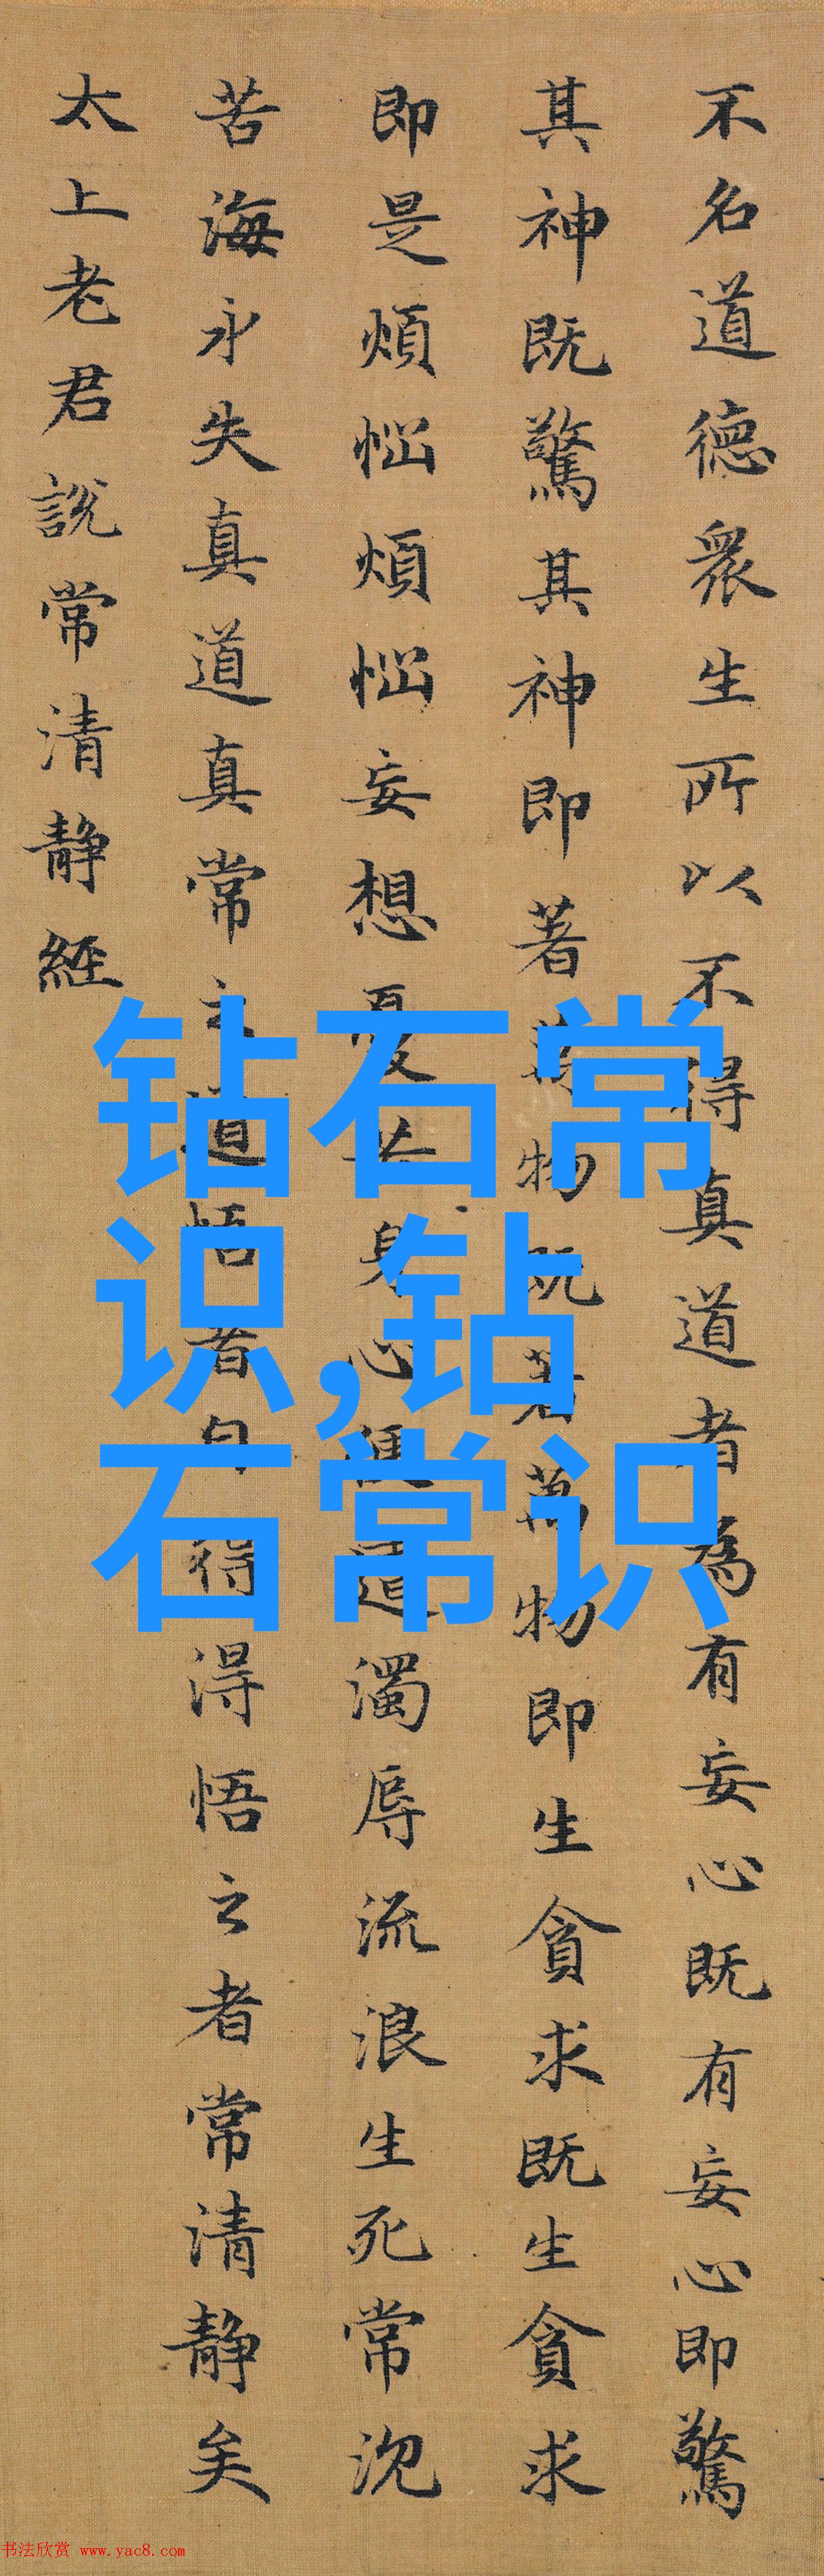 不名道德衆生所以不得真道者為有妄心既有妄心即驚
其神既驚其神即著萬物既著萬物即生貪求既生貪求
即是煩惱煩惱妄想憂苦身心便遭濁辱流浪生死常沉
苦海永失真道真常之道悟者自得得悟之者常清静矣
太上老君說常清静經
钻石常
识,钻
石常识
书法欣赏 www.yac8.com